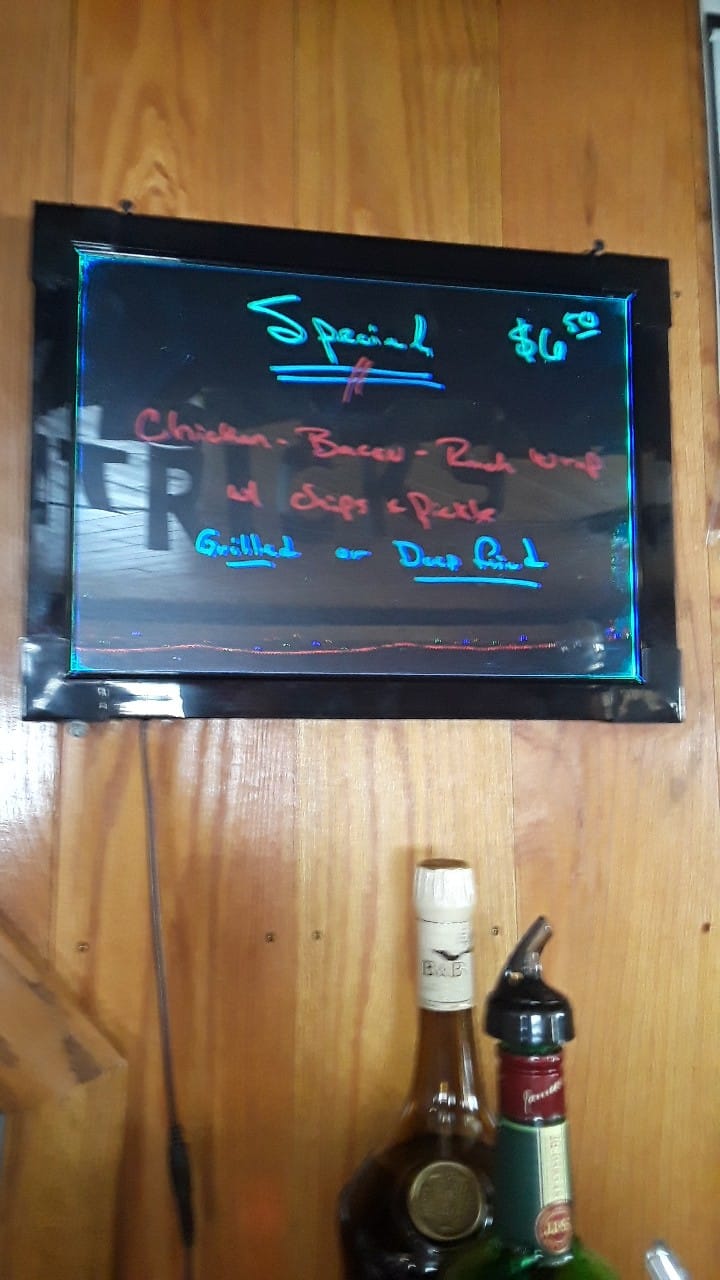 Special $6.50
Chicken - Bacon - Ranch Wrap
w/ chips & pickle
Grilled or Deep fried
TRICKS
B&B
Jameson
JJ&S